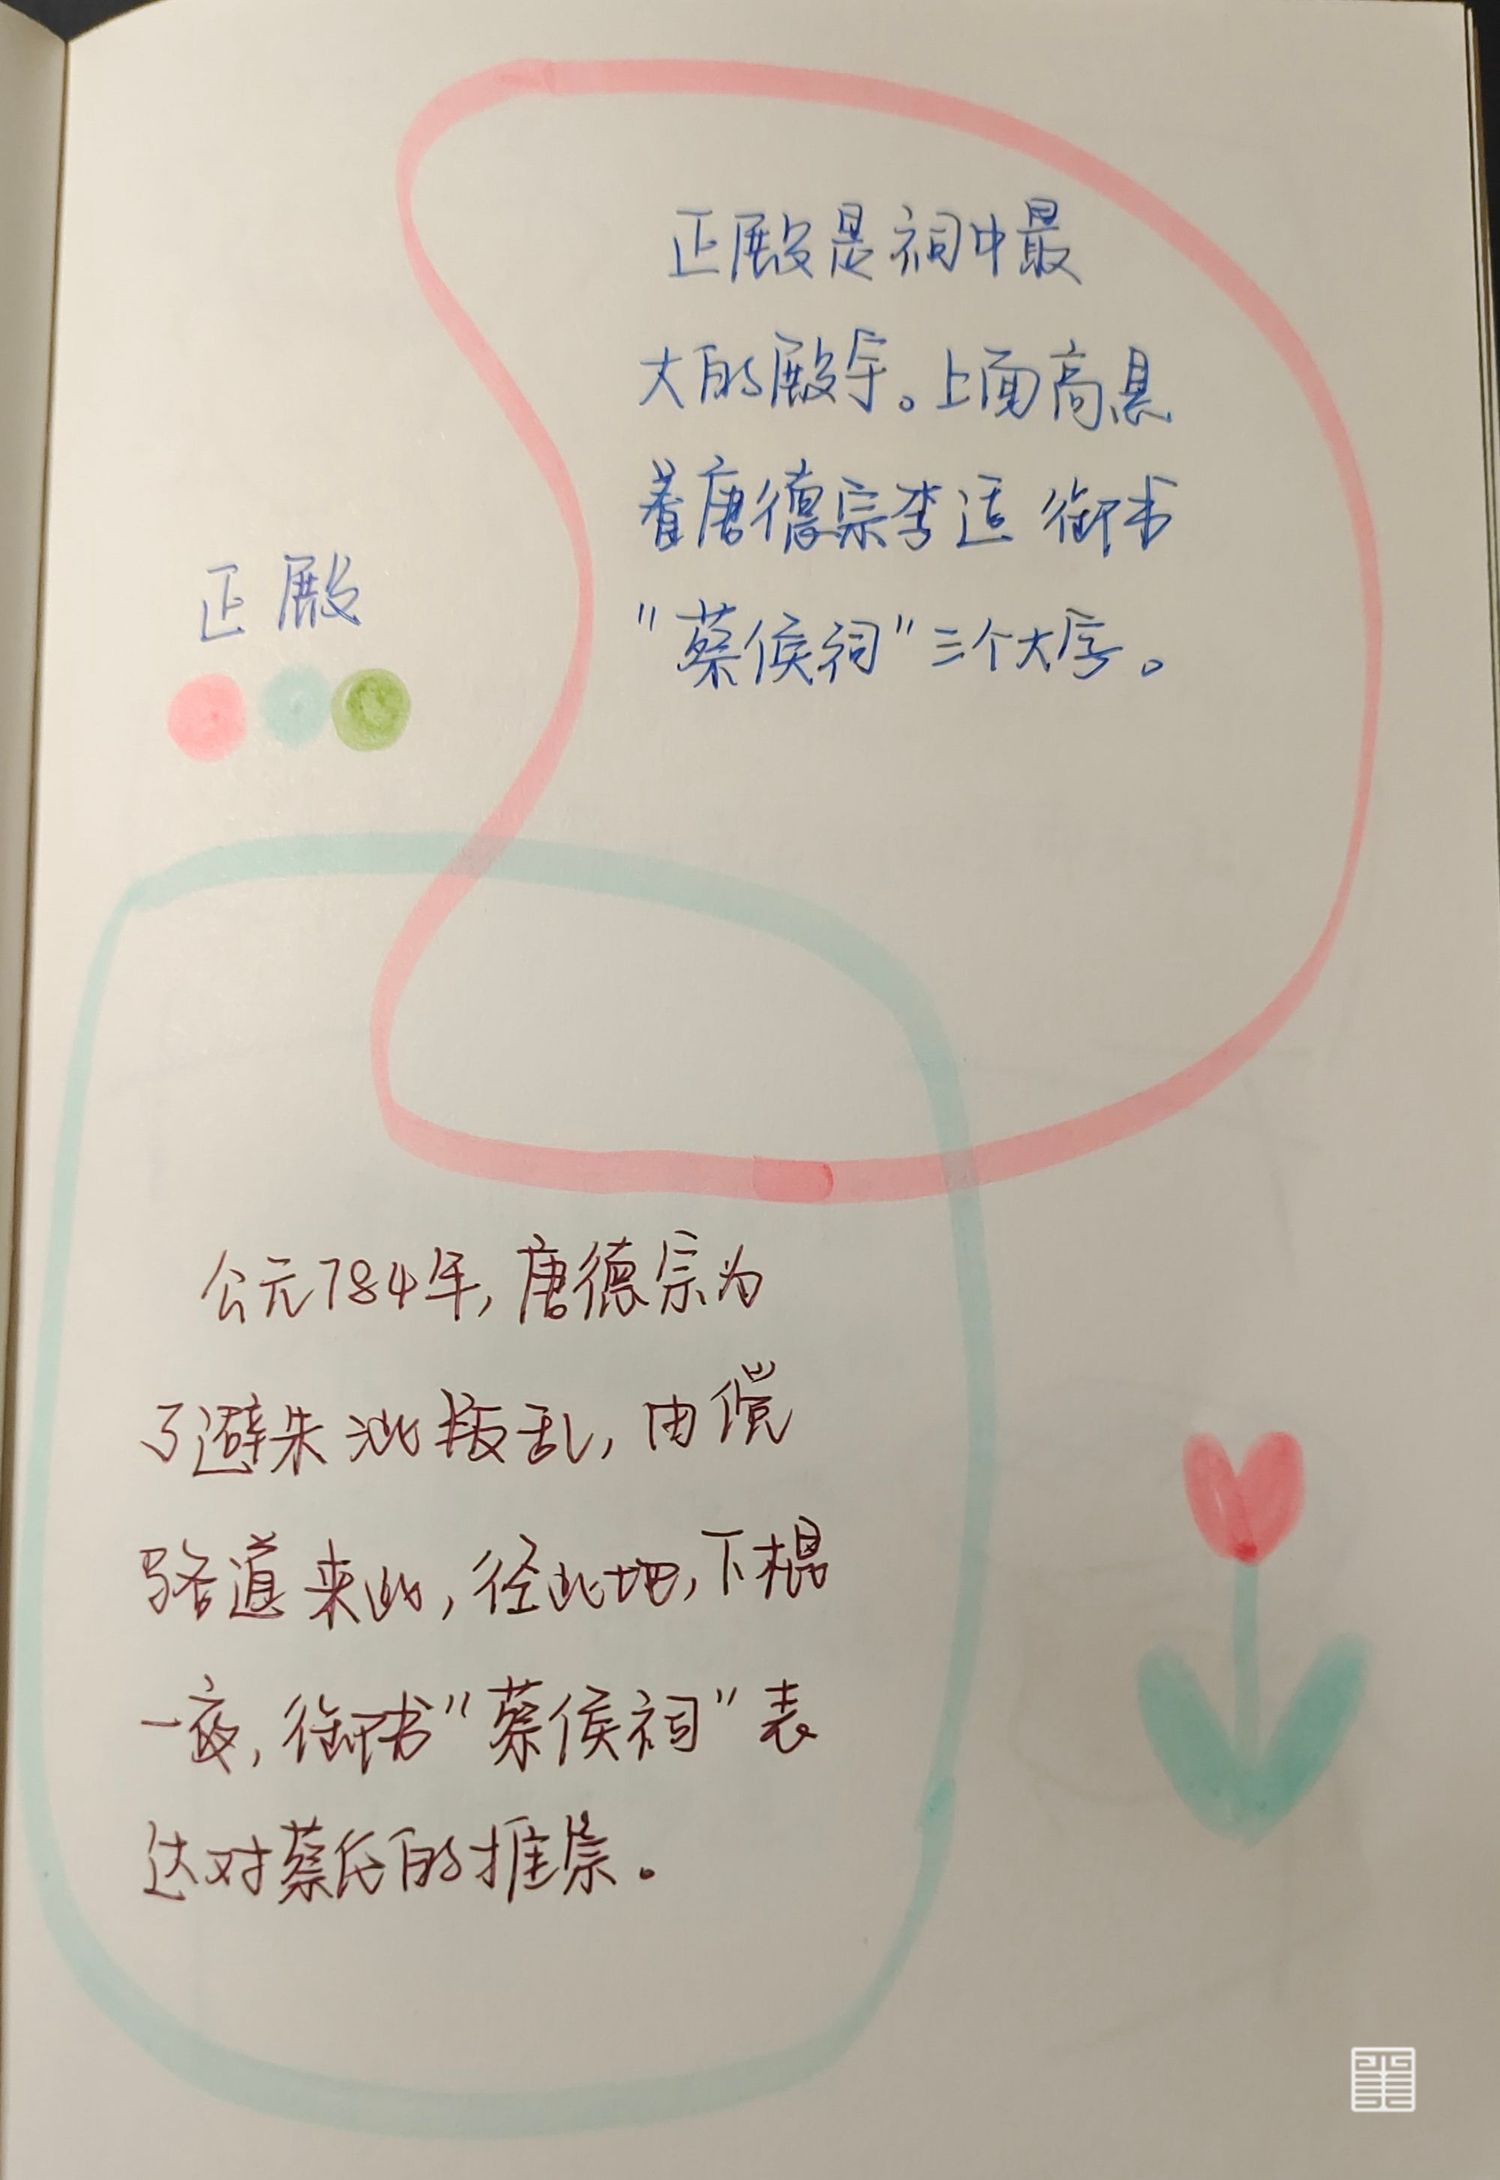 正殿
正殿是祠中最
大的殿宇。上面高悬
着唐德宗李适御书
“蔡侯祠”三个大字。
公元784年,唐德宗为
了避朱泚叛乱,由傥
骆道来此,径此地,下榻
一夜,御书“蔡侯祠”表
达对蔡氏的推崇。